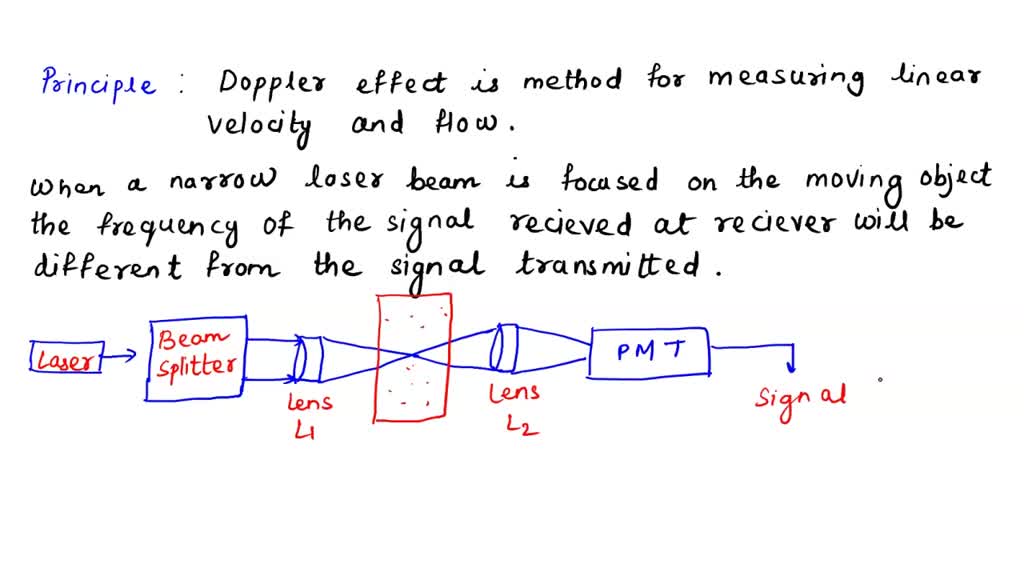 Principle : Doppler effect is method for measuring linear
velocity and flow.
When a narrow laser beam is focused on the moving object
the frequency of the signal recieved at reciever will be
different from the signal transmitted.
Laser
Beam
Splitter
Lens
L1
Lens
L2
PMT
Signal